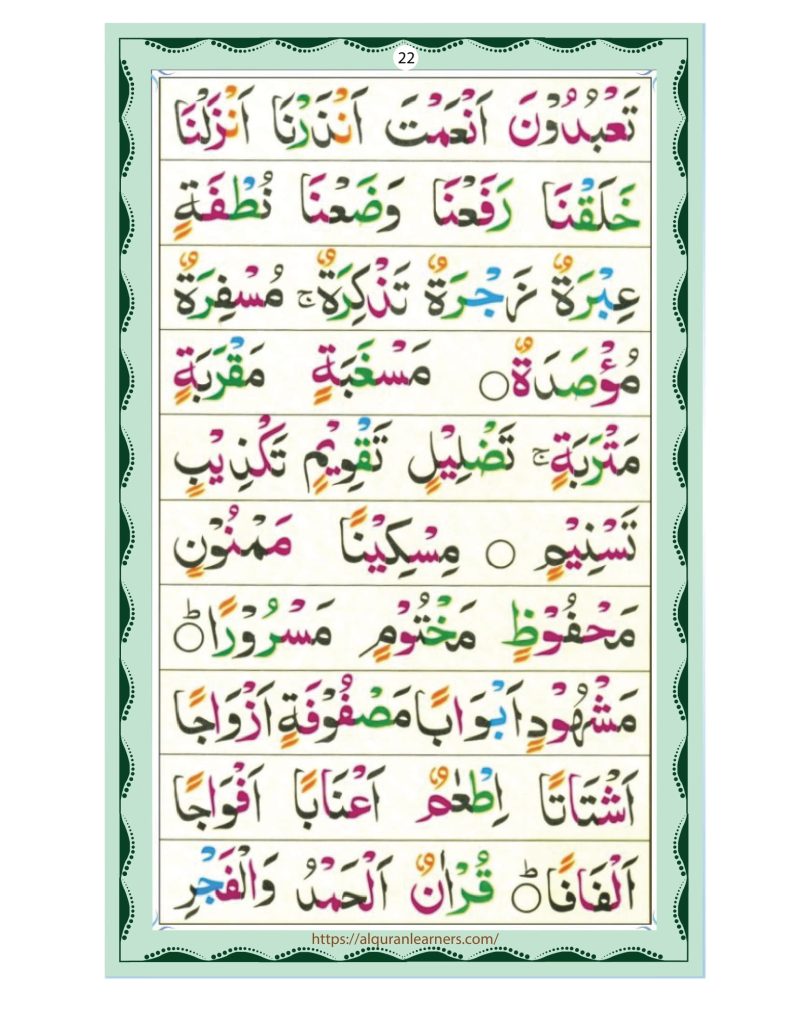 22
تَعْبُدُوْنَ اَنْعَمْتَ اَنْذَرْنَا اَنْزَلْنَا
خَلَقْنَا رَفَعْنَا وَضَعْنَا نُطْفَةٍ
عِبْرَةٌ زَجْرَةٌ تَذْكِرَةٌ ج مُسْفِرَةٌ
مُؤْصَدَةٌ ○ مَسْغَبَةٍ مَقْرَبَةٍ
مَتْرَبَةٍ ج تَضْلِيْلٍ تَقْوِيْمٍ تَكْذِيْبٍ
تَسْنِيْمٍ ○ مِسْكِيْنًا مَمْنُوْنٍ
مَحْفُوْظٍ مَخْتُوْمٍ مَسْرُوْرًا ○ ط
مَشْهُوْدٍ اَبْوَابًا مَصْفُوْفَةٍ اَزْوَاجًا
اَشْتَاتًا اِطْعٰمٌ اَعْنَابًا اَفْوَاجًا
اَلْفَافًا ○ ط قُرْاٰنٌ اَلْحَمْدُ وَالْفَجْرِ
https://alquranlearners.com/